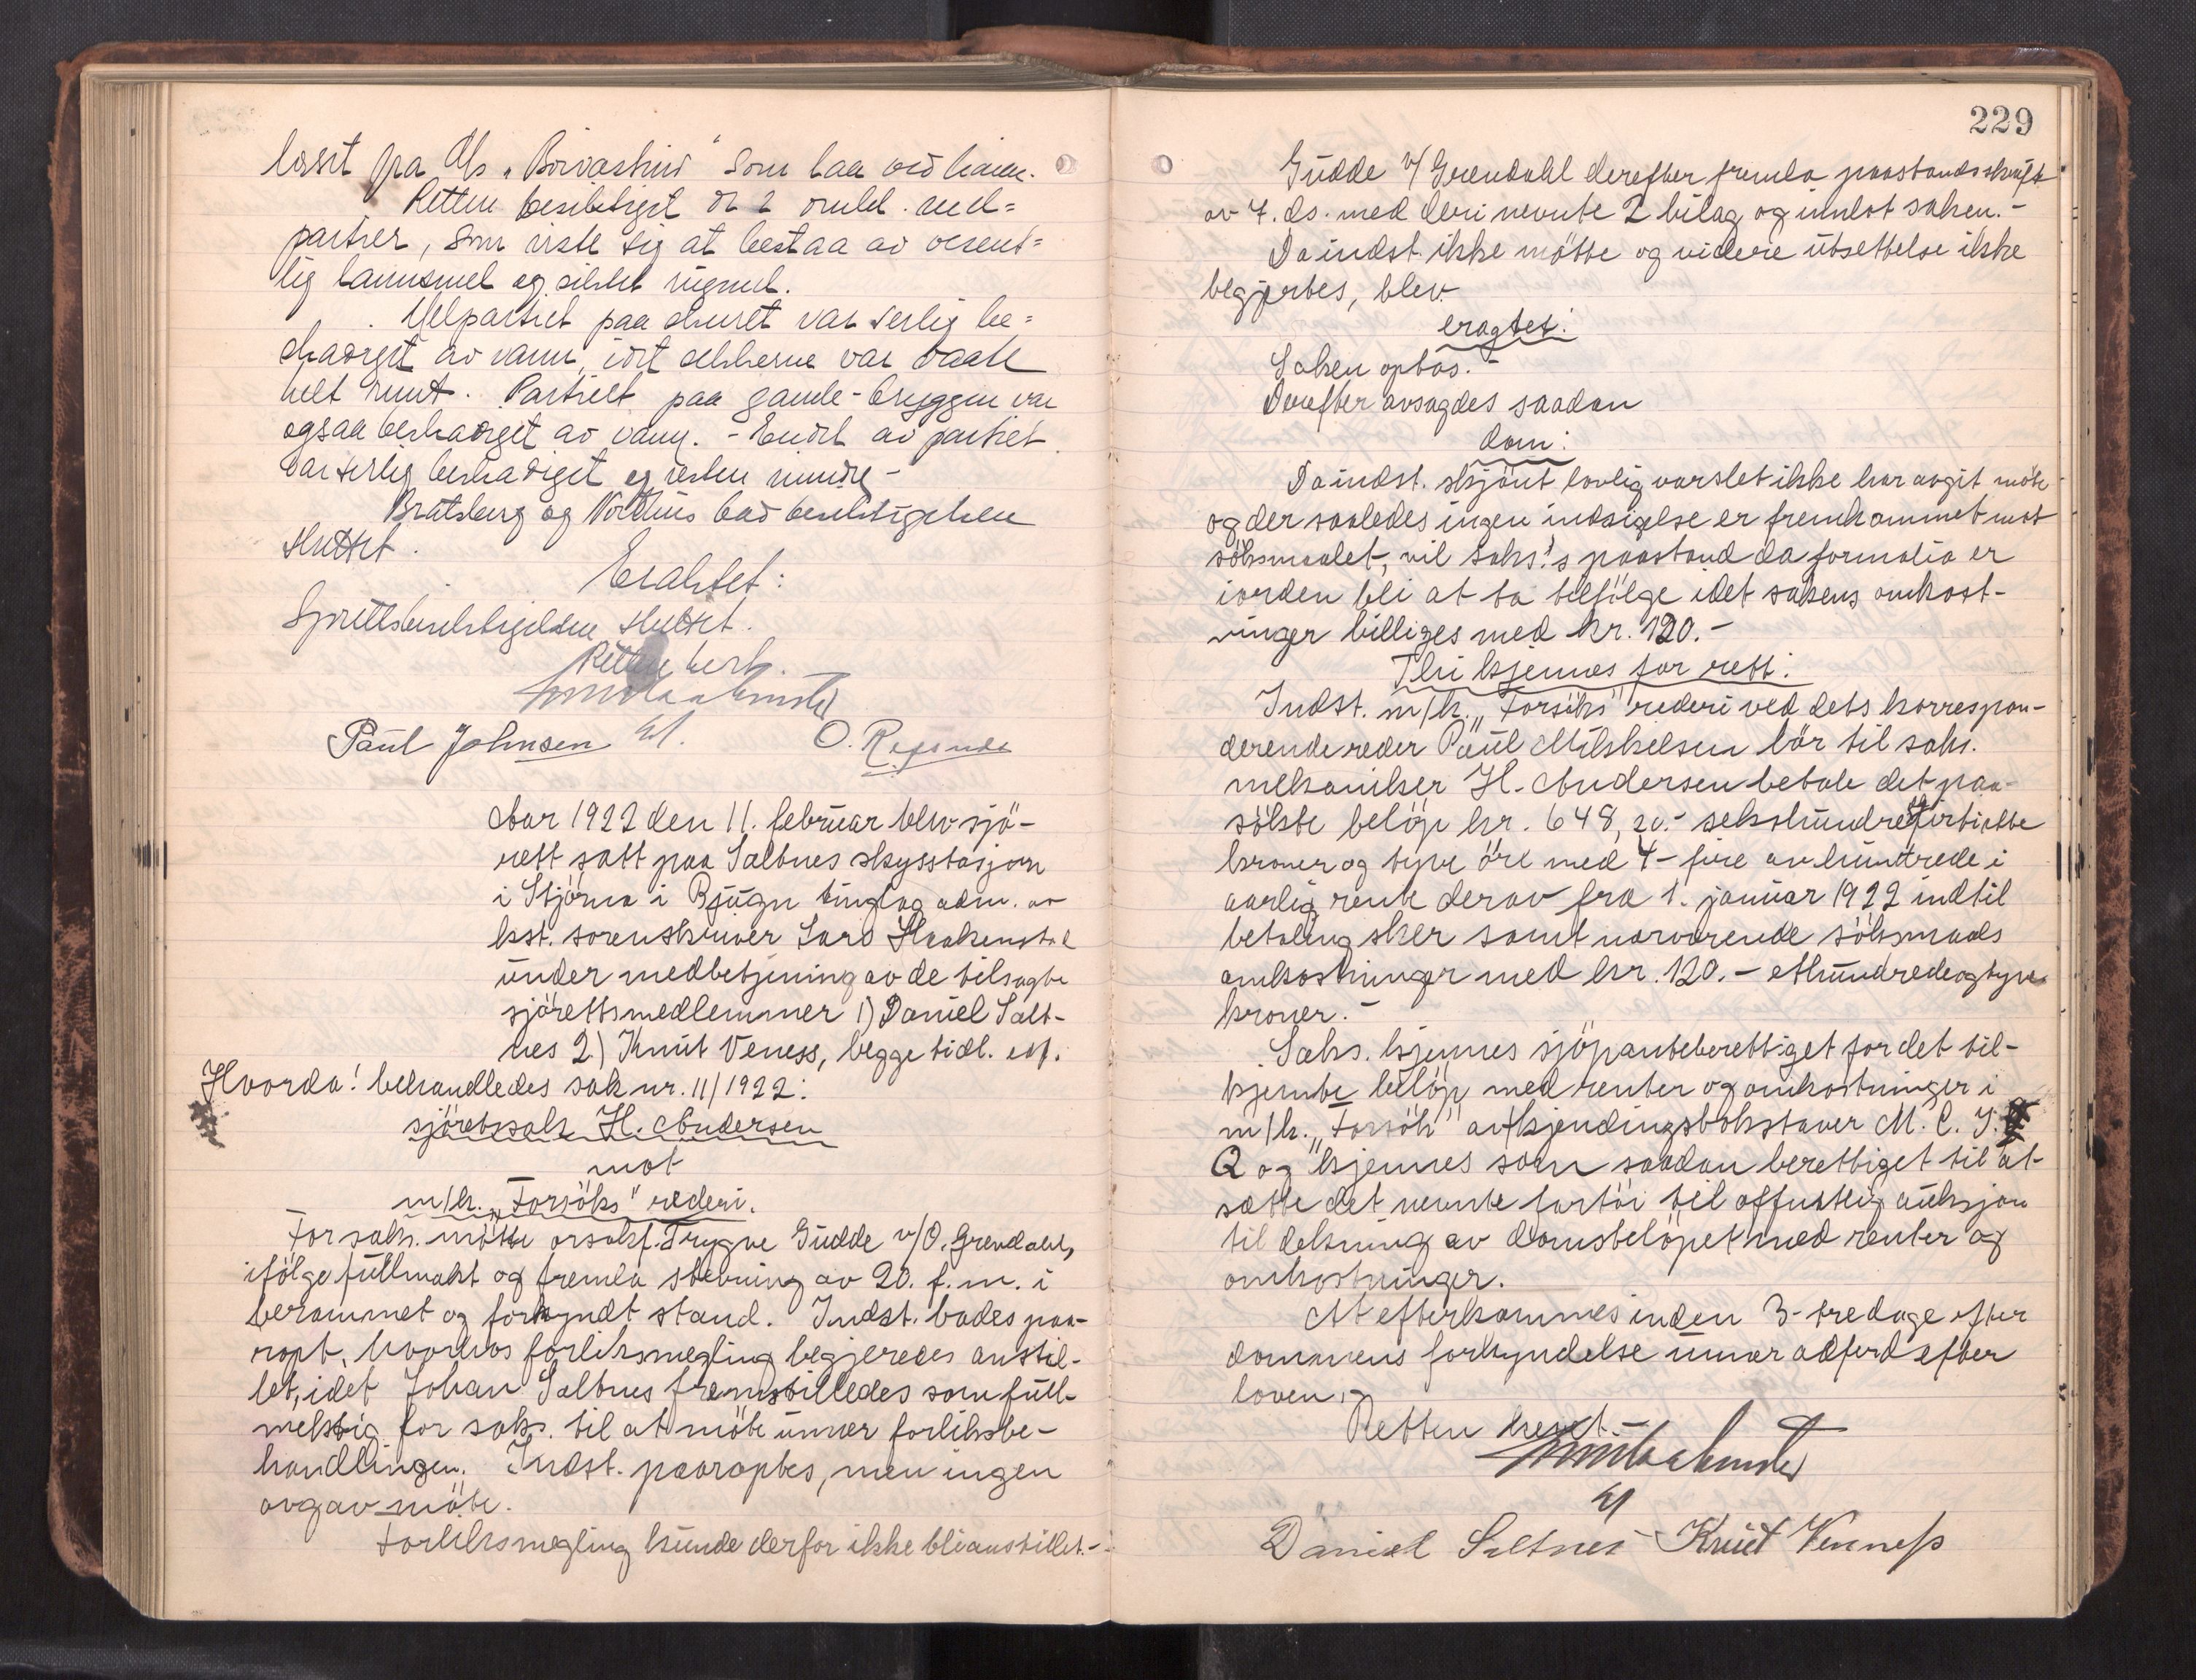 lasset fra M/s "Borvastind" som laa ved kaien.
Retten besiktiget de 2 omhd. mel=
partier, som viste sig at bestaa av vesent=
lig hannsmel og siktet rugmel.
Melpartiet paa skuret var særlig be=
skadiget av vann, idet sekkerne var vaate
helt rundt. Partiet paa gamle-bryggen var
ogsaa beskadiget av vann. - Endel av partiet
var særlig beskadiget og resten mindre -
Bratsberg og bad besiktigelsen
sluttet.
Eraktet:
Sjörettsbesiktigelsen sluttet.
Retten hevet.
Paul Johnsen O.
Aar 1922 den 11. februar blev sjö-
rett satt paa Saltnes skysstasjon
i Stjørna i Bjugn tinglag adm. av
kst. sorenskriver Lars Haakenstad
under medbetjening av de tilsagte
sjörettsmedlemmer 1) Daniel Salt-
nes 2.) Knut Veness, begge tidl. edf.
Hvorda! behandledes sak nr. 11/1922:
sjöretssak H. Andersen
mot
m/k. "Forsöks" rederi.
For saks. møtte orsakf. Trygve Gudde v/O. Grendahl,
ifölge fullmakt og fremla stevning av 20. f.m. i
berammet og forkyndt stand. Indst. bades paa-
ropt, hvorhos forliksmegling begjæredes anstil-
let, idet Johan Saltnes fremstilledes som full-
mektig for saks. til at möte under forliksbe-
handlingen. Indst. paaroptes, men ingen
avgav möte.
Forliksmegling kunde derfor ikke bli anstillet. -
229
Gudde v/Grendahl derefter fremla paastandsskrift
av 7. ds. med deri nevnte 2 bilag og innlot saken. -
Da indst. ikke mötte og videre utsettelse ikke
begjertes, blev
eragtet:
Saken optas. -
Derefter avsagdes saadan
dom:
Da indst. skjönt lovlig varslet ikke har avgit möte
og der saaledes ingen indsigelse er fremkommet mot
söksmaalet, vil saks.'s paastand da formalia er
iorden bli at ta tilfölge idet sakens omkost-
ninger billiges med kr. 120. -
Thi kjennes for rett:
Indst. m/k. "Forsöks" rederi ved dets korrespon-
derende reder Paul Mikkelsen bör til saks.
mekaniker H. Andersen betale det paa-
sökte belöp kr. 648,20. - sekshundredeogförtiotte
kroner og tyve öre med 4 - fire av hundrede i
aarlig rente derav fra 1. januar 1922 indtil
betaling sker samt nærværende söksmaals
omkostninger med kr. 120. - ethundredeogtyve
kroner. -
Saks. kjennes sjöpanteberettiget for det til-
kjente belöp med renter og omkostninger i
m/k. "Forsök" av kjendingsbokstaver M. C. J.
Q og kjennes som saadan berettiget til at
sætte det nevnte fartöi til offentlig auksjon
til dekning av domsbelöpet med renter og
omkostninger.
At efterkommes inden 3 - tre dage efter
dommens forkyndelse unner adferd efter
loven. -
Retten hevet. -
Daniel Saltnes Knut Venness